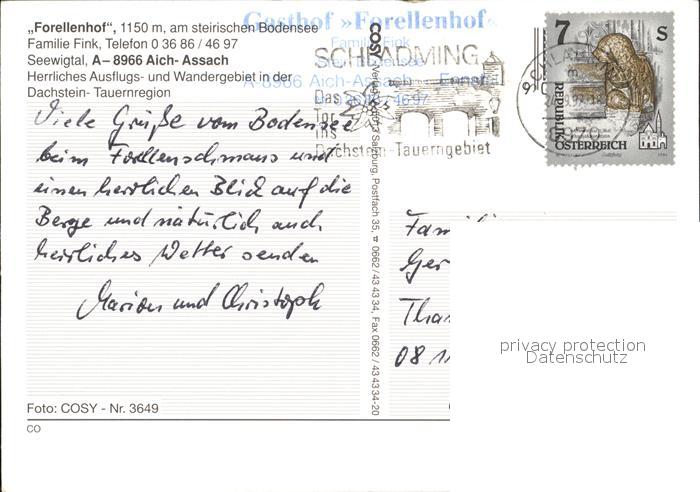 „Forellenhof“, 1150 m, am steirischen Bodensee
Familie Fink, Telefon 0 36 86 / 46 97
Seewigtal, A– 8966 Aich- Assach
Herrliches Ausflugs- und Wandergebiet in der
Dachstein- Tauernregion
Gasthof »Forellenhof«
Familie Fink
A-8966 Aich-Assach
SCHLADMING
Das
Tor
ins
Dachstein-Tauerngebiet
7 S
REPUBLIK
ÖSTERREICH
Viele Grüße vom Bodensee
beim Forellenschmaus und
einen herrlichen Blick auf die
Berge und natürlich auch
herrliches Wetter senden
Marion und Christoph
COSY Verlag, A-5021 Salzburg, Postfach 35, ☎ 0662 / 43 43 34, Fax 0662 / 43 43 34-20
Fam
Ger
Tha
08
privacy protection
Datenschutz
Foto: COSY - Nr. 3649
CO